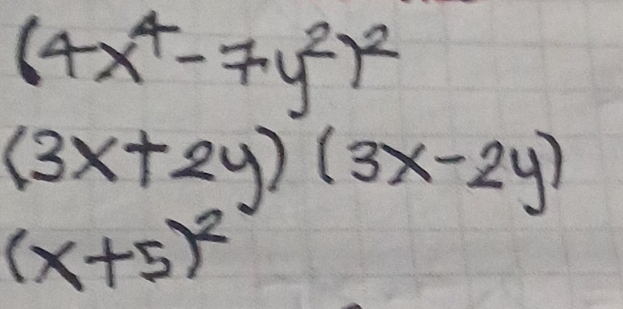 (4x⁴-7y²)²
(3x+2y)(3x-2y)
(x+5)²